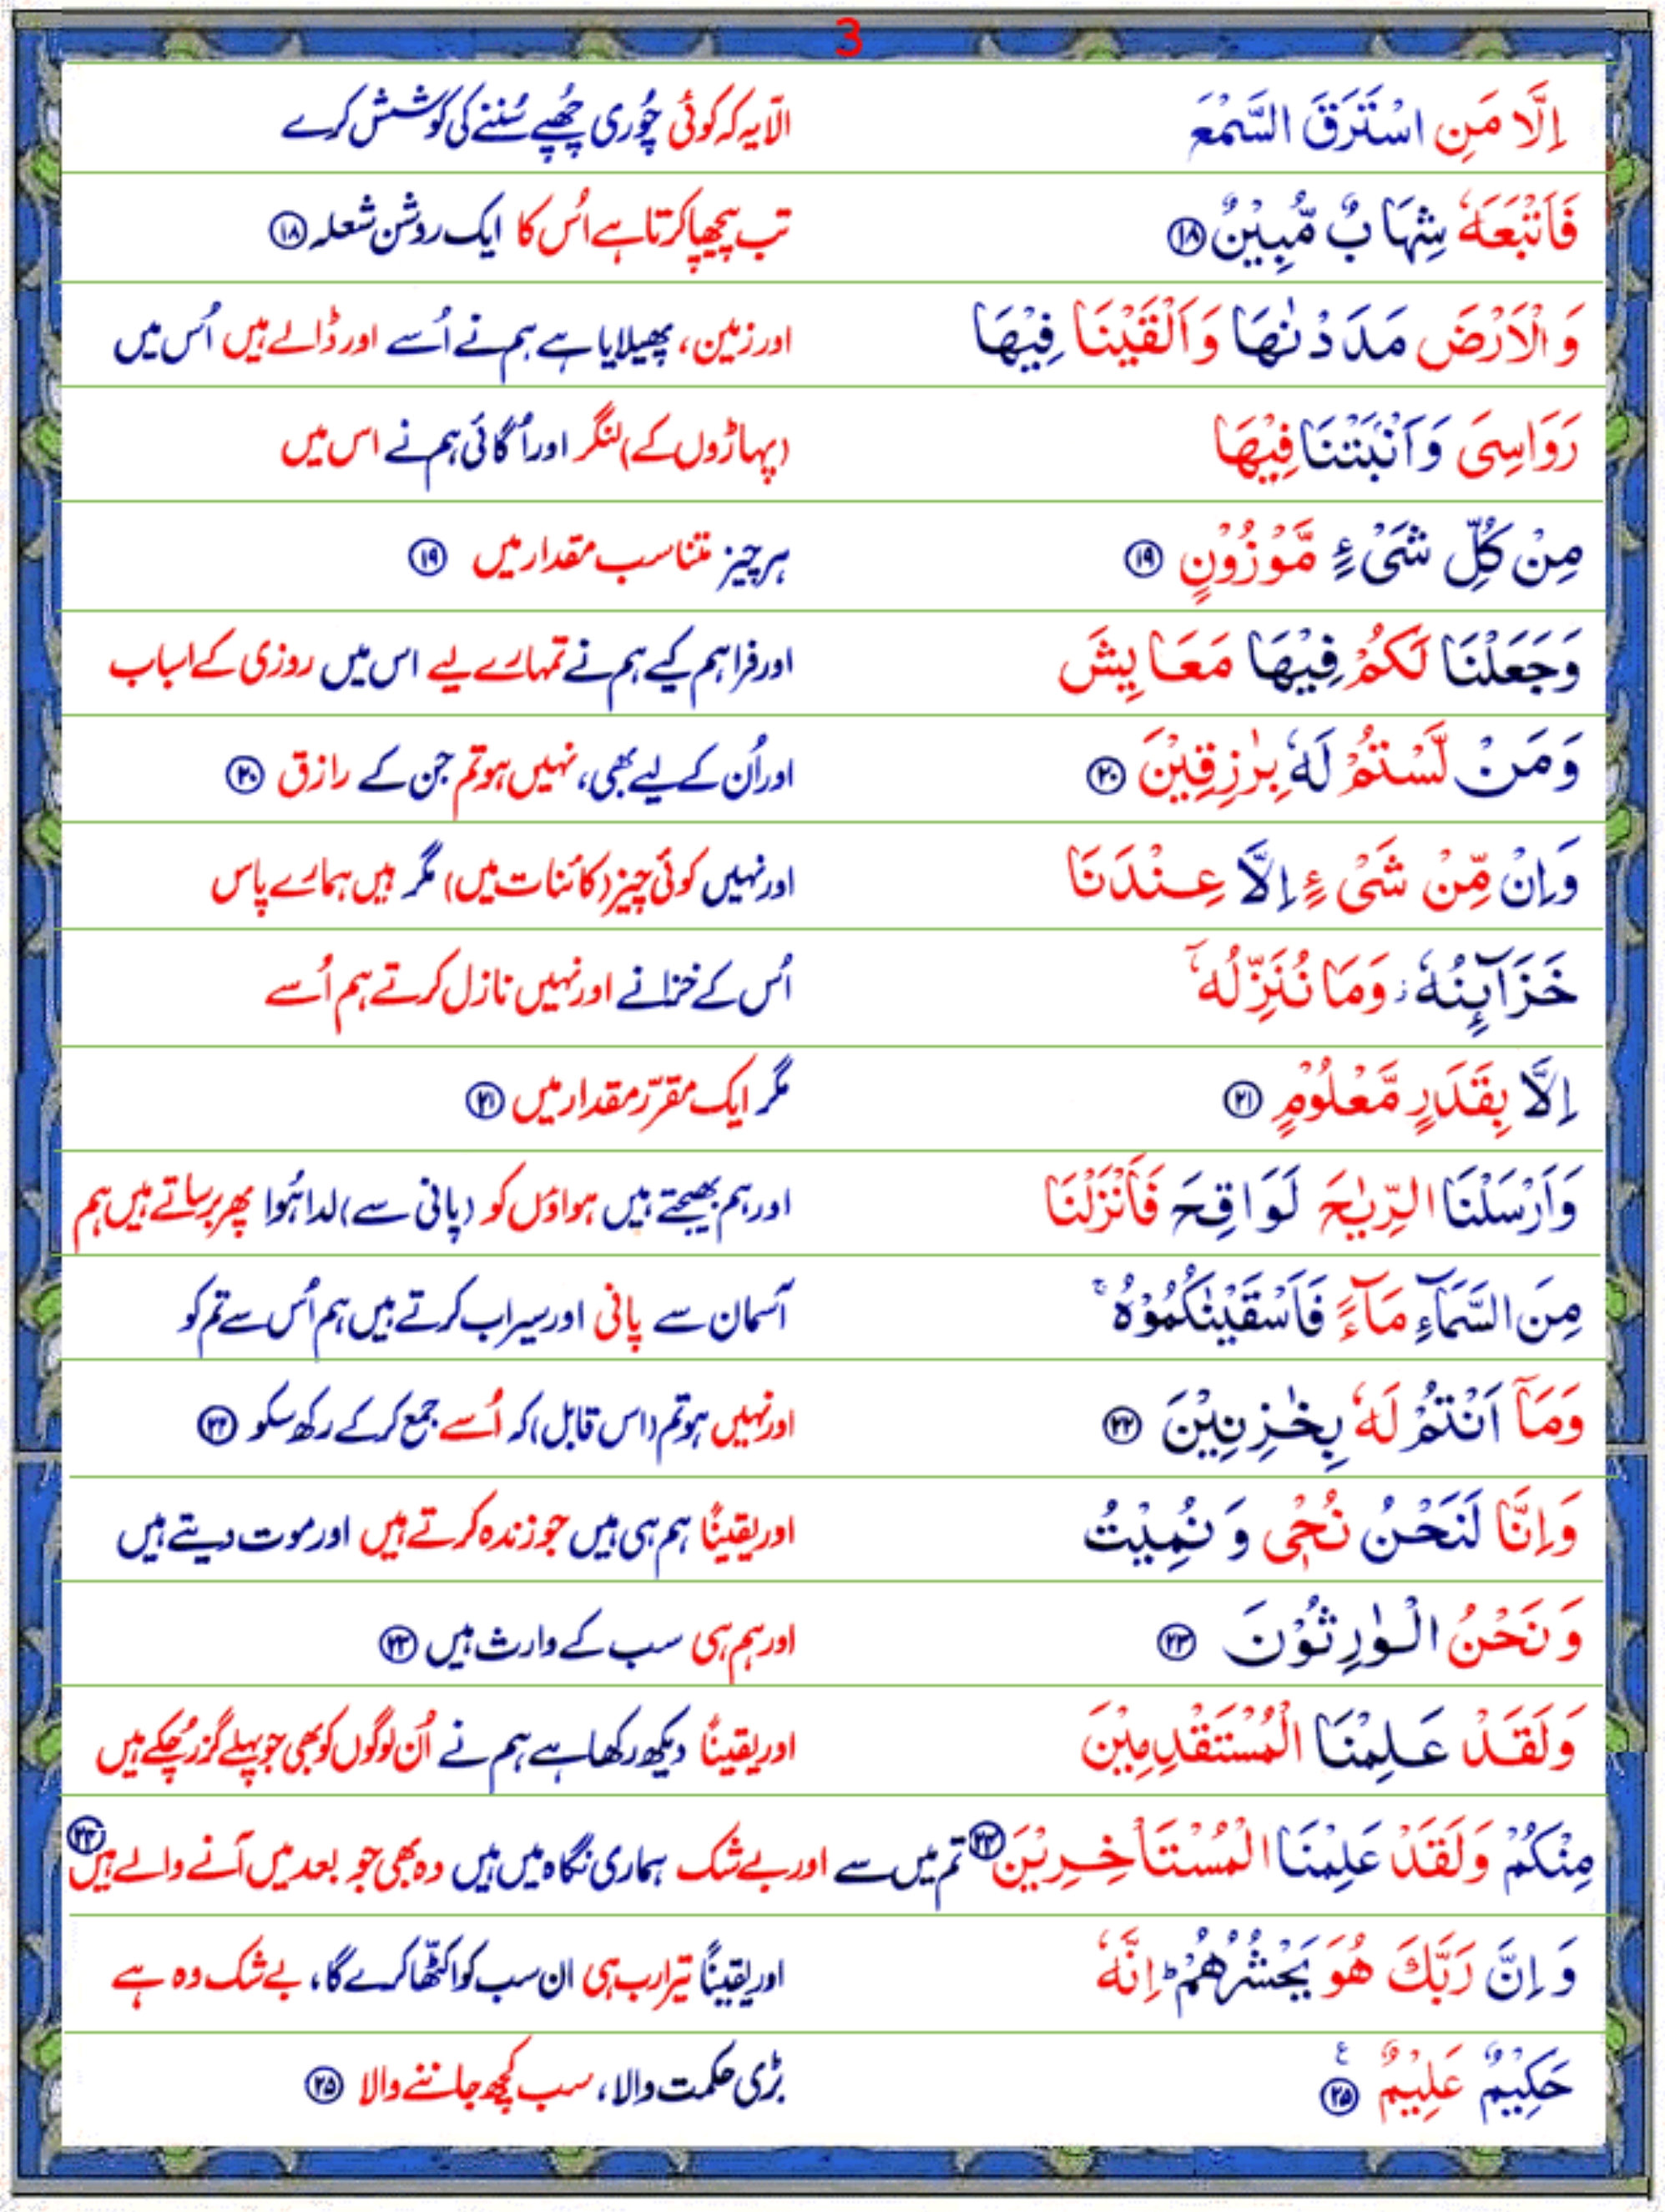 3
اِلَّا مَنِ اسْتَرَقَ السَّمْعَ الّا یہ کہ کوئی چُوری چُھپے سُننے کی کوشش کرے
فَاَتْبَعَهٗ شِهَابٌ مُّبِيْنٌ ۱۸ تب پیچھا کرتا ہے اُس کا ایک روشن شعلہ ۱۸
وَ الْاَرْضَ مَدَدْنٰهَا وَاَلْقَيْنَا فِيْهَا اور زمین، پھیلایا ہے ہم نے اُسے اور ڈالے ہیں اُس میں
رَوَاسِىَ وَاَنْۢبَتْنَا فِيْهَا (پہاڑوں کے) لنگر اور اُگائی ہم نے اس میں
مِنْ كُلِّ شَىْءٍ مَّوْزُوْنٍ ۱۹ ہر چیز متناسب مقدار میں ۱۹
وَجَعَلْنَا لَكُمْ فِيْهَا مَعَايِشَ اور فراہم کیے ہم نے تمہارے لیے اس میں روزی کے اسباب
وَمَنْ لَّسْتُمْ لَهٗ بِرٰزِقِيْنَ ۲۰ اور اُن کے لیے بھی، نہیں ہو تم جن کے رازق ۲۰
وَاِنْ مِّنْ شَىْءٍ اِلَّا عِنْدَنَا اور نہیں کوئی چیز (کائنات میں) مگر ہیں ہمارے پاس
خَزَآئِنُهٗ ز وَمَا نُنَزِّلُهٗۤ اُس کے خزانے اور نہیں نازل کرتے ہم اُسے
اِلَّا بِقَدَرٍ مَّعْلُوْمٍ ۲۱ مگر ایک مقرّر مقدار میں ۲۱
وَاَرْسَلْنَا الرِّيٰحَ لَوَاقِحَ فَاَنْزَلْنَا اور ہم بھیجتے ہیں ہواؤں کو (پانی سے) لدا ہُوا پھر برساتے ہیں ہم
مِنَ السَّمَآءِ مَآءً فَاَسْقَيْنٰكُمُوْهُ ۚ آسمان سے پانی اور سیراب کرتے ہیں ہم اُس سے تم کو
وَمَاۤ اَنْتُمْ لَهٗ بِخٰزِنِيْنَ ۲۲ اور نہیں ہو تم (اس قابل) کہ اُسے جمع کر کے رکھ سکو ۲۲
وَاِنَّا لَنَحْنُ نُحْىٖ وَ نُمِيْتُ اور یقیناً ہم ہی ہیں جو زندہ کرتے ہیں اور موت دیتے ہیں
وَ نَحْنُ الْوٰرِثُوْنَ ۲۳ اور ہم ہی سب کے وارث ہیں ۲۳
وَلَقَدْ عَلِمْنَا الْمُسْتَقْدِمِيْنَ اور یقیناً دیکھ رکھا ہے ہم نے اُن لوگوں کو بھی جو پہلے گزر چُکے ہیں
مِنْكُمْ وَلَقَدْ عَلِمْنَا الْمُسْتَاْخِرِيْنَ ۲۴ تم میں سے اور بے شک ہماری نگاہ میں ہیں وہ بھی جو بعد میں آنے والے ہیں ۲۴
وَ اِنَّ رَبَّكَ هُوَ يَحْشُرُهُمْ ؕ اِنَّهٗ اور یقیناً تیرا رب ہی ان سب کو اکٹّھا کرے گا، بے شک وہ ہے
حَكِيْمٌ عَلِيْمٌ ۲۵ ع بڑی حکمت والا، سب کچھ جاننے والا ۲۵